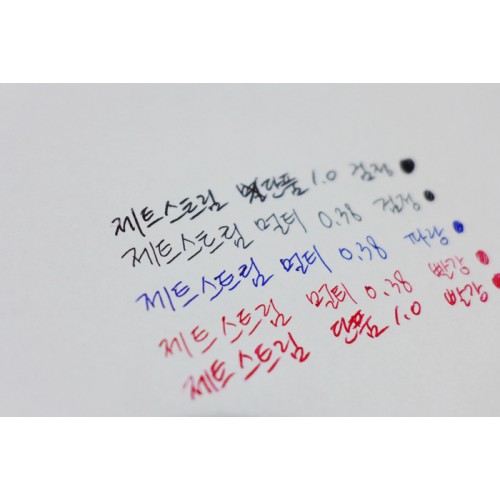 제트스트림 단품 1.0 검정
제트스트림 멀티 0.38 검정
제트스트림 멀티 0.38 파랑
제트스트림 멀티 0.38 빨강
제트스트림 단품 1.0 빨강